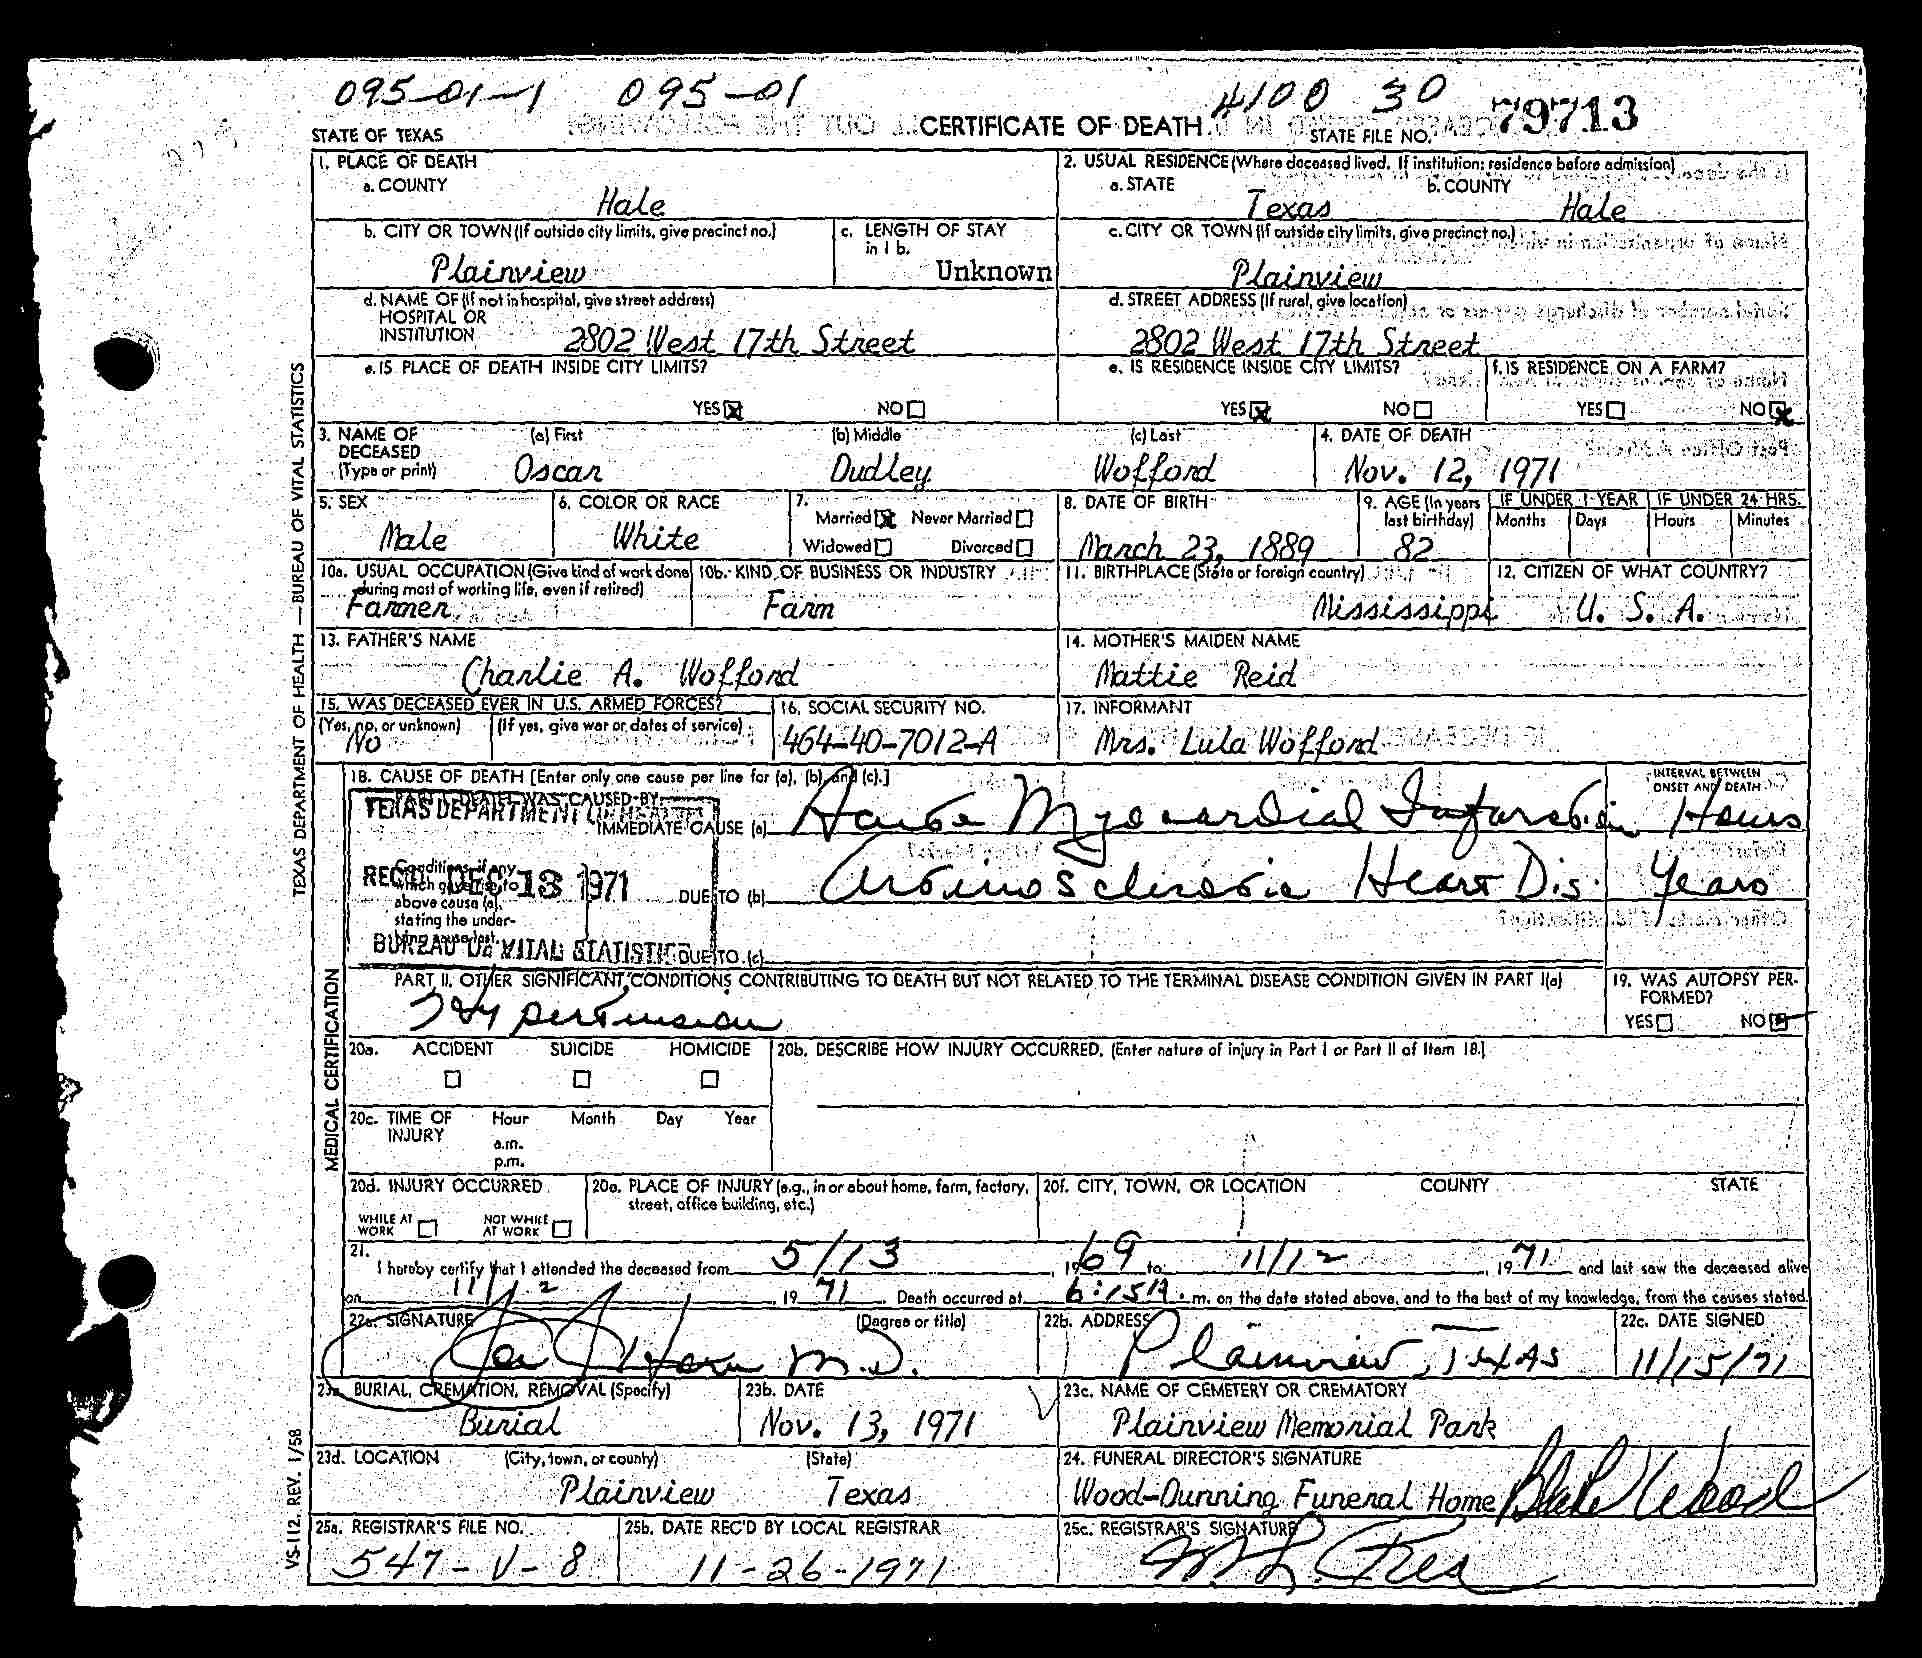 095-01-1 095-01 4100 30
STATE OF TEXAS CERTIFICATE OF DEATH STATE FILE NO. 79713
1. PLACE OF DEATH
a. COUNTY
Hale
2. USUAL RESIDENCE (Where deceased lived. If institution: residence before admission)
a. STATE b. COUNTY
Texas Hale
b. CITY OR TOWN (If outside city limits, give precinct no.)
Plainview
c. LENGTH OF STAY
in 1 b.
Unknown
c. CITY OR TOWN (If outside city limits, give precinct no.)
Plainview
d. NAME OF (If not in hospital, give street address)
HOSPITAL OR
INSTITUTION
2802 West 17th Street
d. STREET ADDRESS (If rural, give location)
2802 West 17th Street
e. IS PLACE OF DEATH INSIDE CITY LIMITS?
YES NO
e. IS RESIDENCE INSIDE CITY LIMITS?
YES NO
f. IS RESIDENCE ON A FARM?
YES NO
3. NAME OF
DECEASED
(Type or print)
(a) First (b) Middle (c) Last
Oscar Dudley Wofford
4. DATE OF DEATH
Nov. 12, 1971
5. SEX
Male
6. COLOR OR RACE
White
7.
Married Never Married
Widowed Divorced
8. DATE OF BIRTH
March 23, 1889
9. AGE (In years
last birthday)
82
IF UNDER 1 YEAR IF UNDER 24 HRS.
Months Days Hours Minutes
10a. USUAL OCCUPATION (Give kind of work done
during most of working life, even if retired)
Farmer
10b. KIND OF BUSINESS OR INDUSTRY
Farm
11. BIRTHPLACE (State or foreign country)
Mississippi
12. CITIZEN OF WHAT COUNTRY?
U. S. A.
13. FATHER'S NAME
Charlie A. Wofford
14. MOTHER'S MAIDEN NAME
Mattie Reid
15. WAS DECEASED EVER IN U.S. ARMED FORCES?
(Yes, no, or unknown) (If yes, give war or dates of service)
No
16. SOCIAL SECURITY NO.
464-40-7012-A
17. INFORMANT
Mrs. Lula Wofford
18. CAUSE OF DEATH [Enter only one cause per line for (a), (b), and (c).]
INTERVAL BETWEEN
ONSET AND DEATH
PART I. DEATH WAS CAUSED BY:
IMMEDIATE CAUSE (a) Acute Myocardial Infarction Hours
Conditions, if any,
which gave rise to
above cause (a),
stating the under-
lying cause last.
DUE TO (b) Arteriosclerotic Heart Dis. Years
DUE TO (c)
TEXAS DEPARTMENT OF HEALTH
REC'D DEC 13 1971
BUREAU OF VITAL STATISTICS
PART II. OTHER SIGNIFICANT CONDITIONS CONTRIBUTING TO DEATH BUT NOT RELATED TO THE TERMINAL DISEASE CONDITION GIVEN IN PART I(a)
Hypertension
19. WAS AUTOPSY PER-
FORMED?
YES NO
20a. ACCIDENT SUICIDE HOMICIDE
20b. DESCRIBE HOW INJURY OCCURRED. (Enter nature of injury in Part I or Part II of Item 18.)
20c. TIME OF
INJURY
Hour Month Day Year
a.m.
p.m.
20d. INJURY OCCURRED
WHILE AT
WORK
NOT WHILE
AT WORK
20e. PLACE OF INJURY (e.g., in or about home, farm, factory,
street, office building, etc.)
20f. CITY, TOWN, OR LOCATION COUNTY STATE
21.
I hereby certify that I attended the deceased from 5/13, 1969 to 11/12, 1971 and last saw the deceased alive
on 11/12, 1971. Death occurred at 6:15A.m. on the date stated above, and to the best of my knowledge, from the causes stated.
22a. SIGNATURE (Degree or title)
M.D.
22b. ADDRESS
Plainview, Texas
22c. DATE SIGNED
11/15/71
23a. BURIAL, CREMATION, REMOVAL (Specify)
Burial
23b. DATE
Nov. 13, 1971
23c. NAME OF CEMETERY OR CREMATORY
Plainview Memorial Park
23d. LOCATION (City, town, or county) (State)
Plainview Texas
24. FUNERAL DIRECTOR'S SIGNATURE
Wood-Dunning Funeral Home Blake Wood
25a. REGISTRAR'S FILE NO.
547-V-8
25b. DATE REC'D BY LOCAL REGISTRAR
11-26-1971
25c. REGISTRAR'S SIGNATURE
TEXAS DEPARTMENT OF HEALTH — BUREAU OF VITAL STATISTICS
MEDICAL CERTIFICATION
VS-112. REV. 1/58